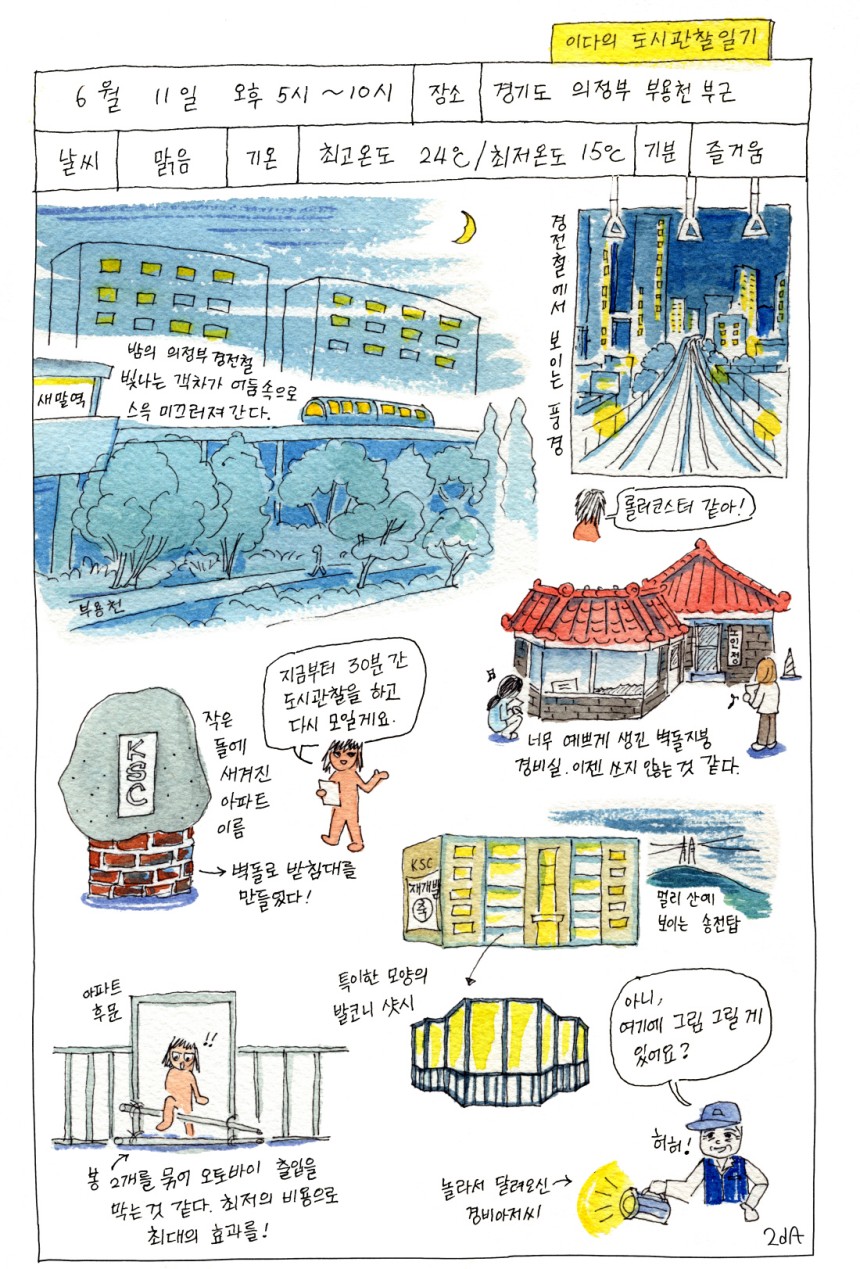 이다의 도시관찰일기
6월 11일 오후 5시 ~10시
장소
경기도 의정부 부용천 부근
날씨
맑음
기온
최고온도 24℃/최저온도 15℃
기분
즐거움
밤의 의정부경전철
빛나는 객차가 어둠속으로
스윽 미끄러져 간다.
새말역
부용천
경전철에서 보이는 풍경
롤러코스터 같아!
노인정
너무 예쁘게 생긴 벽돌지붕
경비실. 이젠 쓰지 않는 것 같다.
지금부터 30분 간
도시관찰을 하고
다시 모일게요.
KSC
작은
돌에
새겨진
아파트
이름
→ 벽돌로 받침대를
만들었다!
KSC
재개발
축
멀리 산에
보이는 송전탑
특이한 모양의
발코니 샷시
아파트
후문
!!
봉 2개를 묶어 오토바이 출입을
막는 것 같다. 최저의 비용으로
최대의 효과를!
아니,
여기에 그림 그릴 게
있어요?
허허!
놀라서 달려오신 →
경비아저씨
2dA